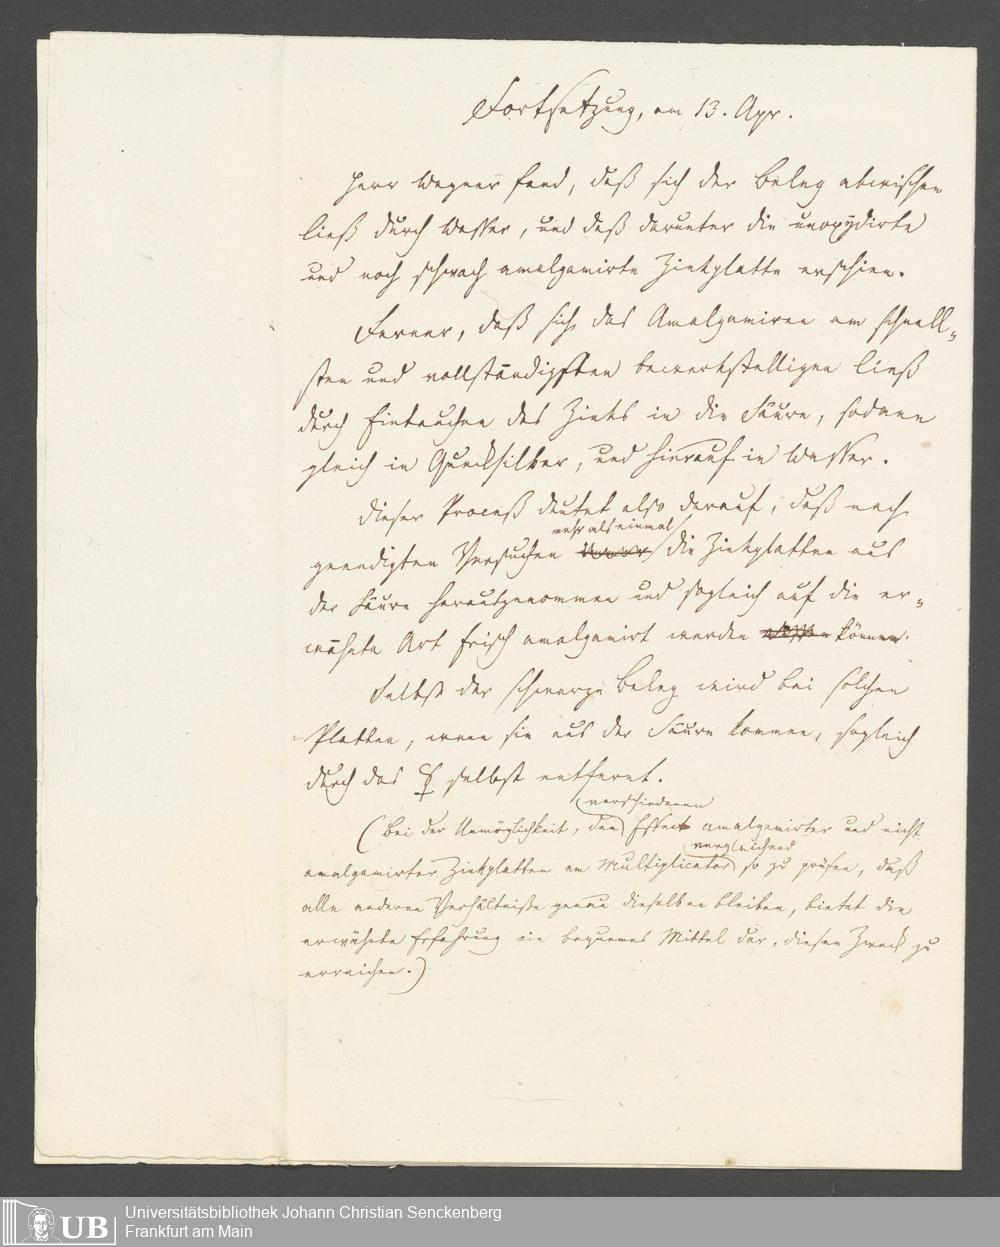 Fortsetzung, am 13. Apr.
Herr Wagner fand, daß sich der Beleg abwischen
ließ durch Wasser, und daß darunter die unoxydirte
und noch schwach amalgamirte Zinkplatte erschien.
Ferner, daß sich das Amalgamiren am schnell-
sten und vollständigsten bewerkstelligen ließ
durch Eintauchen des Zinks in die Säure, sodann
gleich in Quecksilber, und hierauf in Wasser.
Dieser Proceß deutet also darauf, daß nach
mehr als einmal
geendigten Versuchen die Zinkplatten aus
der Säure herausgenommen und sogleich auf die er-
wähnte Art frisch amalgamirt werden können.
Selbst der schwarze Beleg wird bei solchen
Platten, wenn sie aus der Säure kommen, sogleich
durch das ☿ selbst entfernt.
verschiedenen
(Bei der Unmöglichkeit, den Effect amalgamirter und nicht
vergleichend
amalgamirter Zinkplatten am Multiplicator so zu prüfen, daß
alle anderen Verhältniße genau dieselben bleiben, bietet die
erwähnte Erfahrung ein bequemes Mittel dar, diesen Zweck zu
erreichen.)
UB
Universitätsbibliothek Johann Christian Senckenberg
Frankfurt am Main